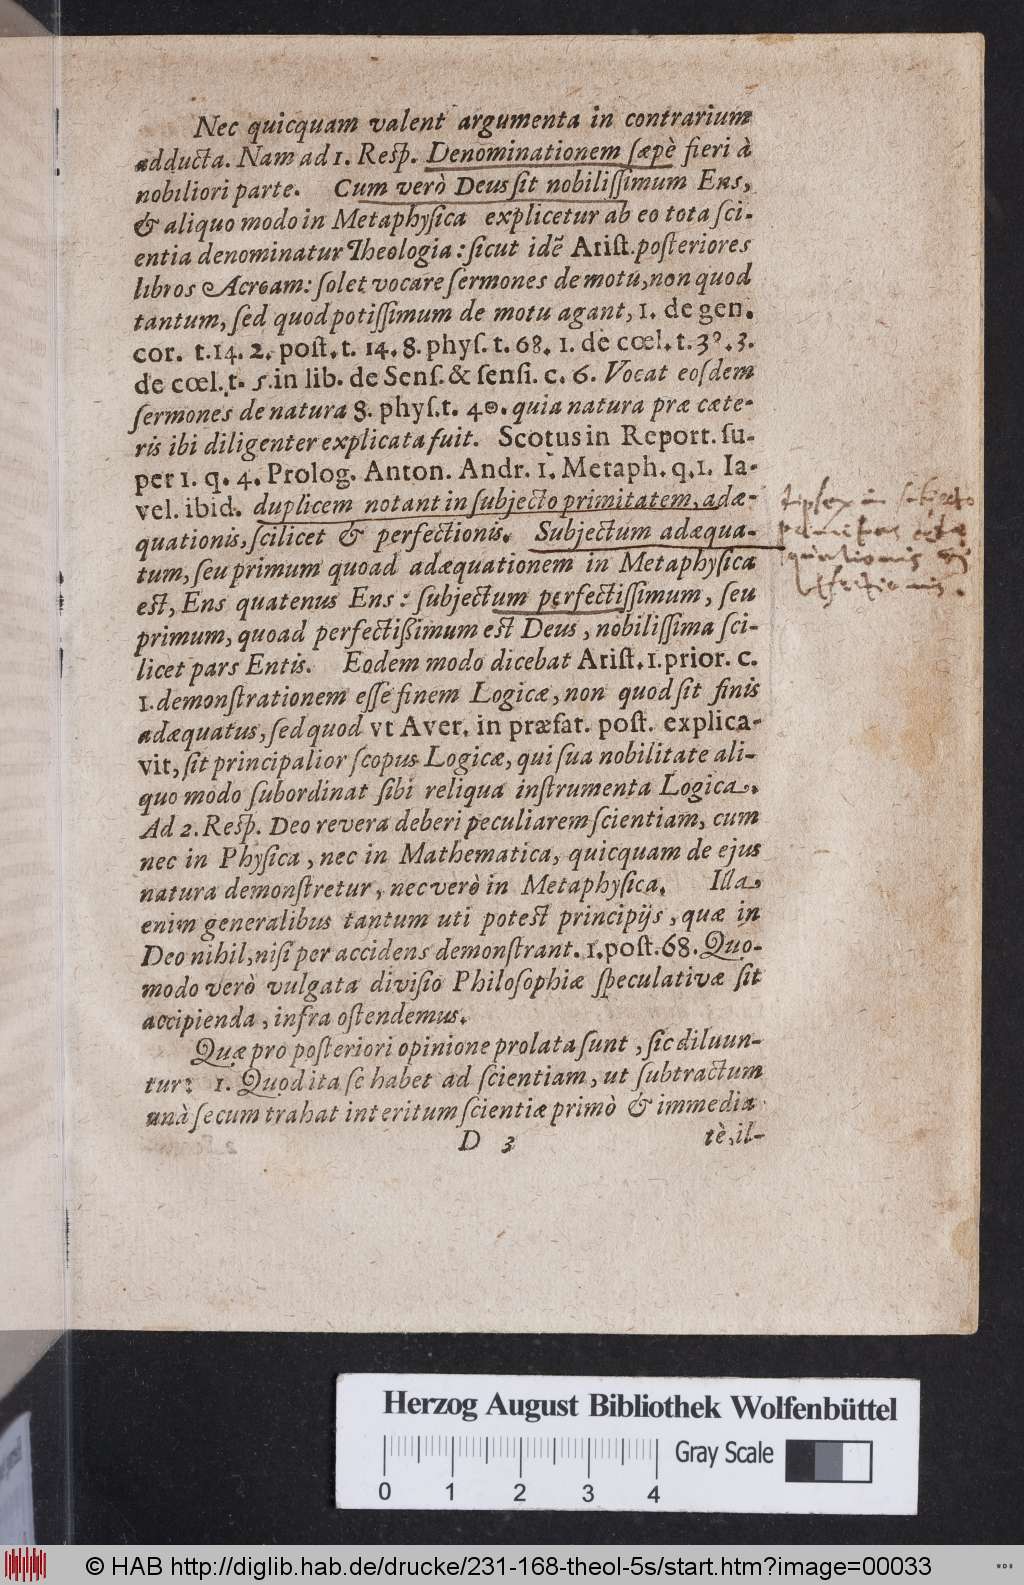 Nec quicquam valent argumenta in contrarium
adducta. Nam ad 1. Resp. Denominationem sæpè fieri à
nobiliori parte. Cum verò Deus sit nobilissimum Ens,
& aliquo modo in Metaphysica explicetur ab eo tota sci-
entia denominatur Theologia: sicut idē Arist. posteriores
libros Acroam: solet vocare sermones de motu, non quod
tantum, sed quod potissimum de motu agant, 1. de gen.
cor. t. 14. 2. post. t. 14. 8. phys. t. 68. 1. de cœl. t. 30. 3.
de cœl. t. 5. in lib. de Sens. & sensi. c. 6. Vocat eosdem
sermones de natura 8. phys. t. 40. quia natura præ cæte-
ris ibi diligenter explicata fuit. Scotus in Report. su-
per 1. q. 4. Prolog. Anton. Andr. 1. Metaph. q. 1. Ia-
vel. ibid. duplicem notant in subjecto primitatem, adæ-
quationis, scilicet & perfectionis. Subjectum adæqua-
tum, seu primum quoad adæquationem in Metaphysica
est, Ens quatenus Ens: subjectum perfectissimum, seu
primum, quoad perfectißimum est Deus, nobilissima sci-
licet pars Entis. Eodem modo dicebat Arist. 1. prior. c.
1. demonstrationem esse finem Logicæ, non quod sit finis
adæquatus, sed quod vt Aver. in præfat. post. explica-
vit, sit principalior scopus Logicæ, qui sua nobilitate ali-
quo modo subordinat sibi reliqua instrumenta Logica.
Ad 2. Resp. Deo revera deberi peculiarem scientiam, cum
nec in Physica, nec in Mathematica, quicquam de ejus
natura demonstretur, nec verò in Metaphysica. Illa
enim generalibus tantum uti potest principijs, quæ in
Deo nihil, nisi per accidens demonstrant. 1. post. 68. Quo-
modo verò vulgata divisio Philosophiæ speculativæ sit
accipienda, infra ostendemus.
Quæ pro posteriori opinione prolata sunt, sic diluun-
tur: 1. Quod ita se habet ad scientiam, ut subtractum
unà secum trahat interitum scientiæ primò & immedia
D 3 tè, il-
in subjecto
primitas
Herzog August Bibliothek Wolfenbüttel
Gray Scale
0 1 2 3 4
© HAB http://diglib.hab.de/drucke/231-168-theol-5s/start.htm?image=00033